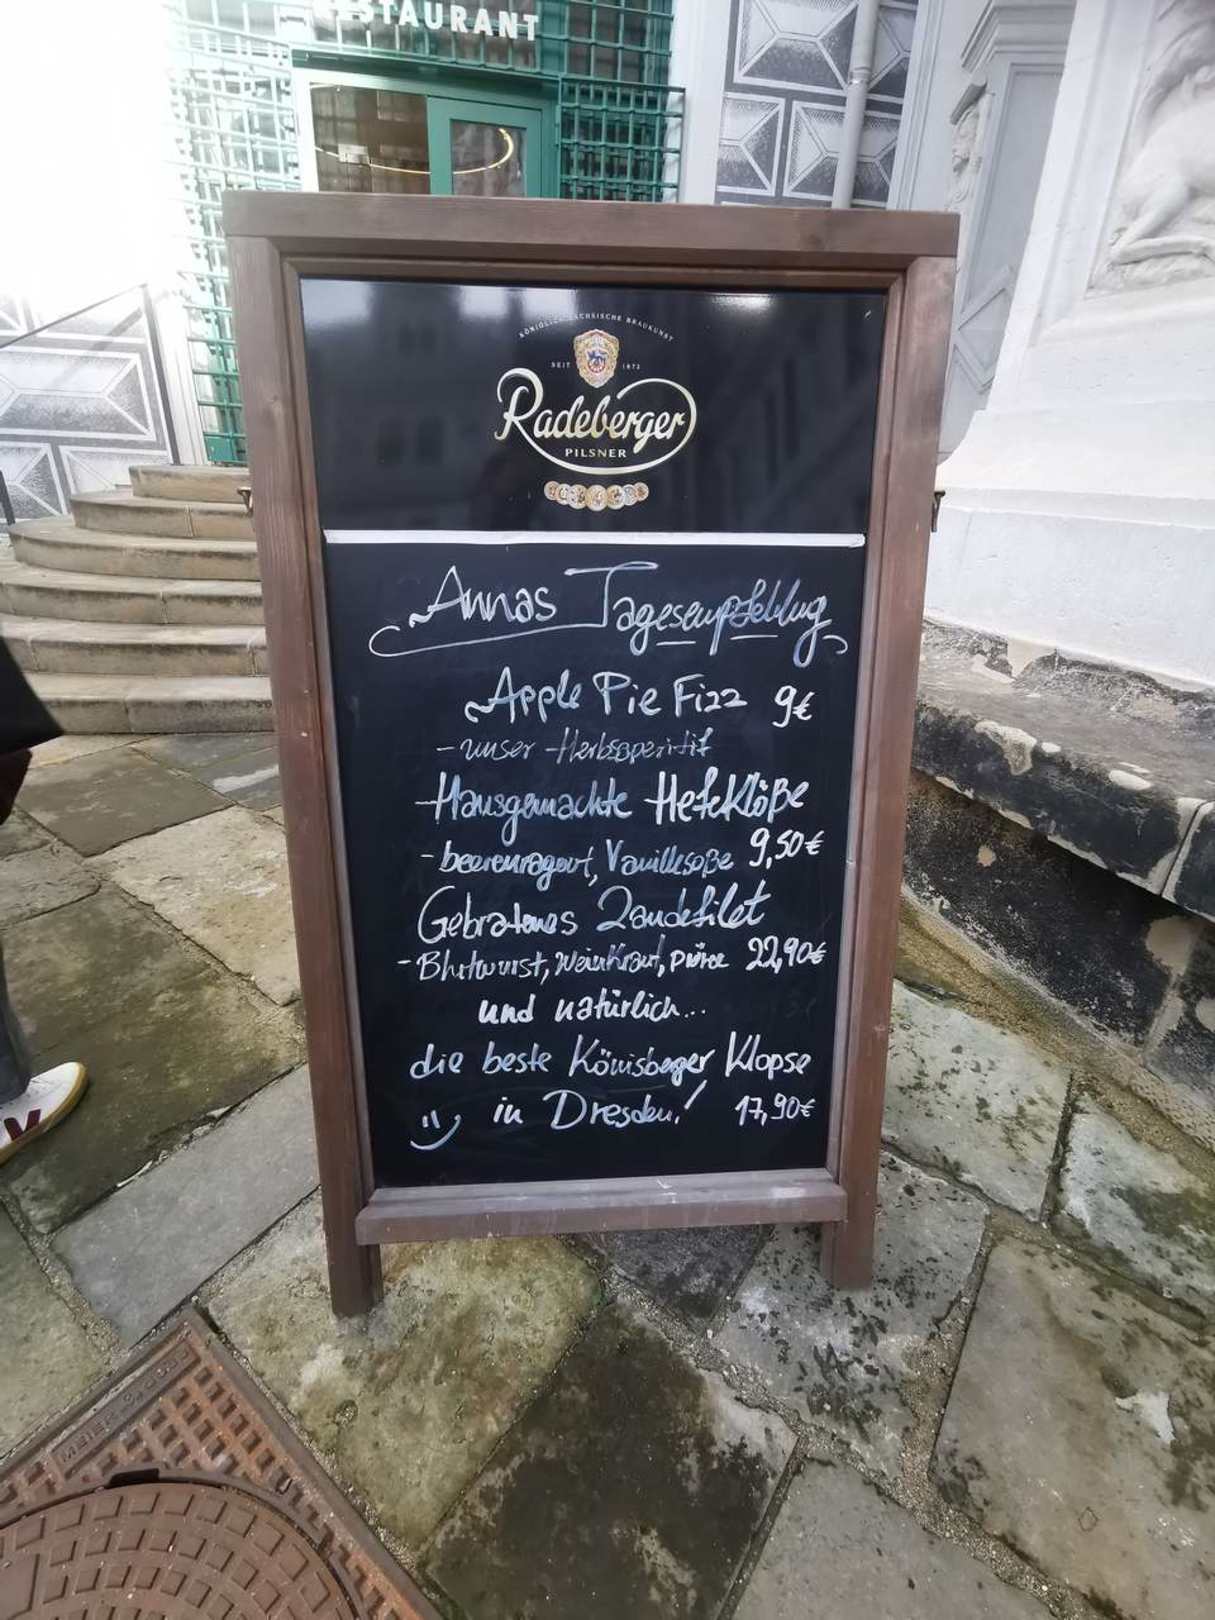 RESTAURANT
KÖNIGLICH SÄCHSISCHE BRAUKUNST
SEIT 1872
Radeberger
PILSNER
Annas Tagesempfehlung
Apple Pie Fizz 9€
- unser Herbstaperitif
Hausgemachte Hefeklöße
- beerenragout, Vanillesoße 9,50€
Gebratenes Zanderfilet
- Blutwurst, Weinkraut, Püree 22,90€
und natürlich...
die beste Königsberger Klopse
in Dresden! 17,90€
MEIER GUSS